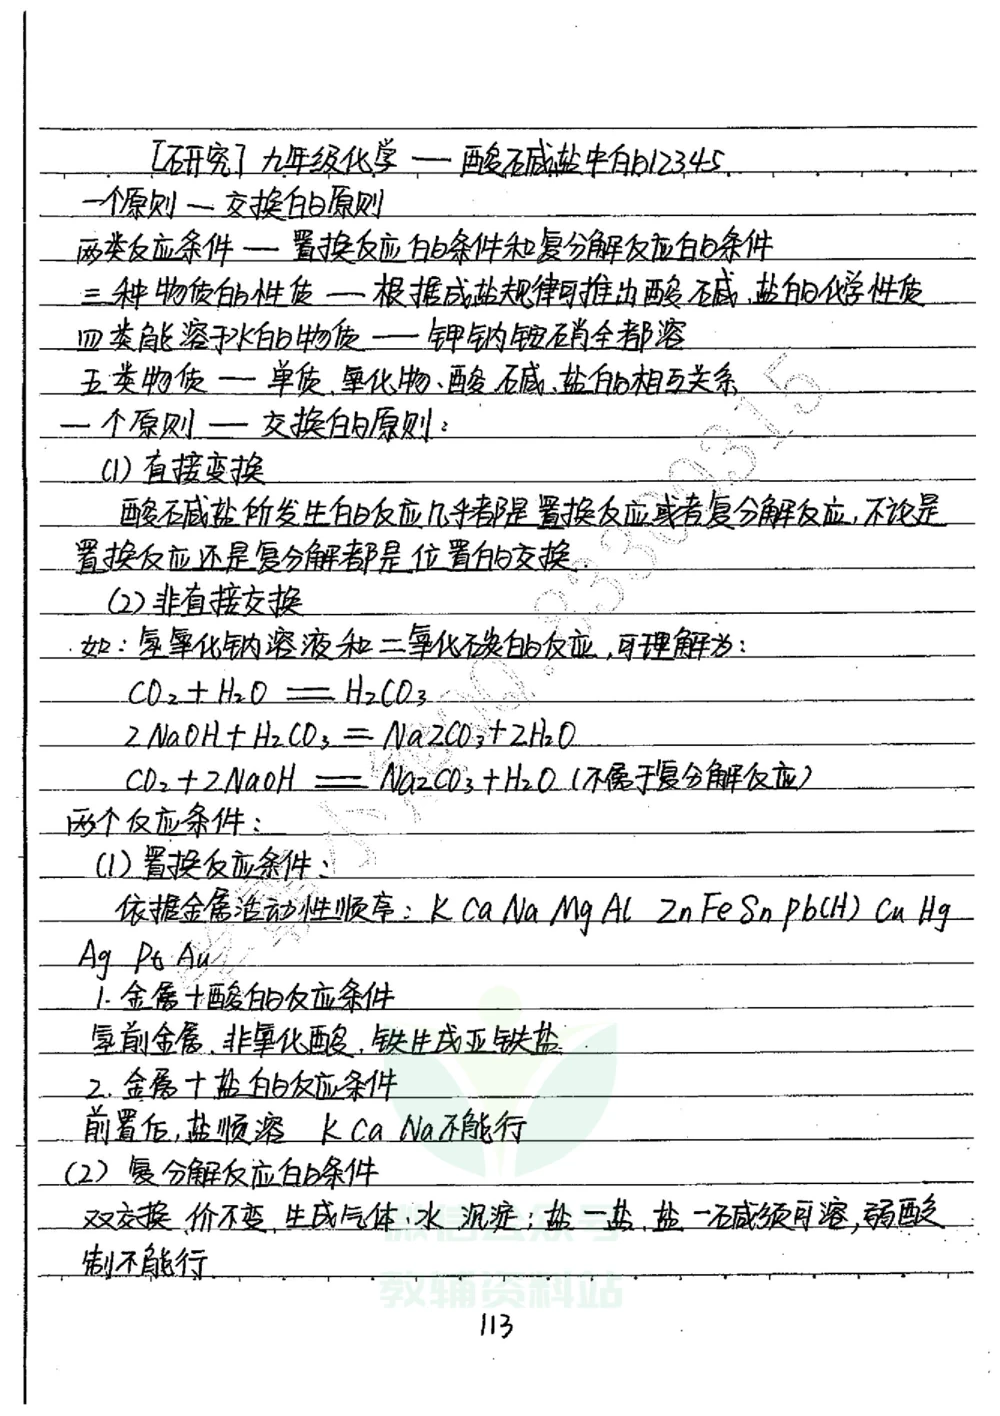 [研究] 九年级化学 — 酸碱盐中的12345
一个原则 — 交换的原则
两类反应条件 — 置换反应的条件和复分解反应的条件
三种物质的性质 — 根据成盐规律可推出酸、碱、盐的化学性质
四类能溶于水的物质 — 钾钠铵硝全都溶
五类物质 — 单质、氧化物、酸、碱、盐的相互关系
一个原则 — 交换的原则:
(1) 直接变换
酸碱盐所发生的反应几乎都是置换反应或者复分解反应,不论是
置换反应还是复分解都是位置的交换.
(2) 非直接交换
如:氢氧化钠溶液和二氧化碳的反应,可理解为:
CO₂+H₂O == H₂CO₃
2NaOH+H₂CO₃ = Na2CO₃+2H₂O
CO₂+2NaOH == Na₂CO₃+H₂O (不属于复分解反应)
两个反应条件:
(1) 置换反应条件:
依据金属活动性顺序: K Ca Na Mg Al Zn Fe Sn Pb(H) Cu Hg
Ag Pt Au
1. 金属+酸的反应条件
氢前金属、非氧化酸、铁生成亚铁盐
2. 金属+盐的反应条件
前置后,盐顺溶 K Ca Na不能行
(2) 复分解反应的条件
双交换、价不变、生成气体、水、沉淀;盐一盐、盐一碱须可溶,弱酸
制不能行
113
微信公众号
教辅资料站